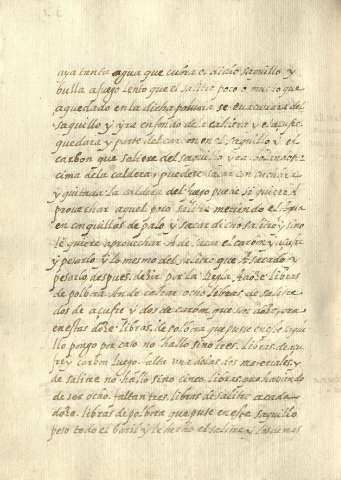 aya tanta agua que cubra el dicho saquillo y
bulla a fuego lento que el salitre poco o mucho que
a quedado en la dicha polvora se evacuara del
saquillo y yra en fondo de la caldera y el açufre
quedara y parte del carbon en el saquillo y el
carbon que saliere del saquillo yra en
cima de la caldera y puedese sacar con cuchara
y quitada la caldera del fuego puede si quiere a
provechar aquel poco salitre metiendo el agua
en conquillos de palo y sacar dicho salitre y si no
se quiere aprovechar A de secar el carbon y açufre
y pesarlo y lo mesmo del salitre que A sacado y
pesarlo despues dezir por la libras
de polvora An de entrar ocho libras de salitre
dos de açufre y dos de carbon que son doze
en estas doze libras de polvora que puse en este saqui
llo pongo por caso no hallo sino tres libras de açu
fre y carbon luego falta una de los dos materiales y
de salitre no hallo sino cinco libras aviendo
de ser ocho faltan tres libras de salitre a cada
doze libras de polvora que puse en este saquillo
peso todo el baril y le hecho el salitre y los demas